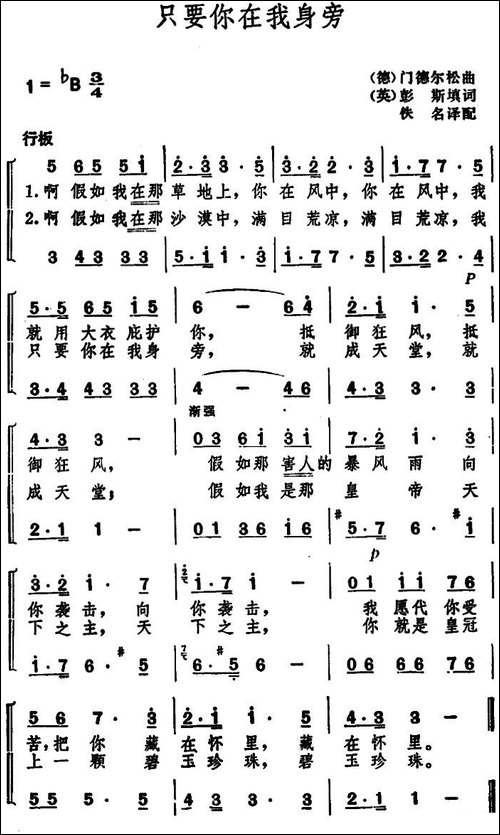 只要你在我身旁
1=♭B 3/4
（德）门德尔松曲
（英）彭 斯填词
佚 名译配
行板
5 65 51 | 2·3 3·5 | 3·2 2·3 | 1·7 7·5
1.啊假如我在那草地上，你在风中，你在风中，我
2.啊假如我在那沙漠中，满目荒凉，满目荒凉，我
3 43 33 | 5·1 1·3 | 1·7 7·5 | 3·2 2·4
P
5·5 65 15 | 6 — 64 | 2·1 1·5
就用大衣庇护你，抵御狂风，抵
只要你在我身旁，就成天堂，就
3·4 43 33 | 4 — 46 | 4·3 3·3
渐强
4·3 3 — | 03 61 31 | 7·2 1·3
御狂风，假如那害人的暴风雨向
成天堂；假如我是那皇帝天
2·1 1 — | 01 36 16 | #5·7 6·#1
p
3·2 1·7 | 1·7 1 | 01 11 76
你袭击，向你袭击，我愿代你受
下之主，天下之主，你就是皇冠
1·7 6·#5 | 6·#5 6 | 06 66 76
56 7·3 | 2·1 1·5 | 4·3 3 —
苦，把你藏在怀里，藏在怀里。
上一颗碧玉珍珠，碧玉珍珠。
55 5·5 | 3·3 3·3 | 2·1 1 —